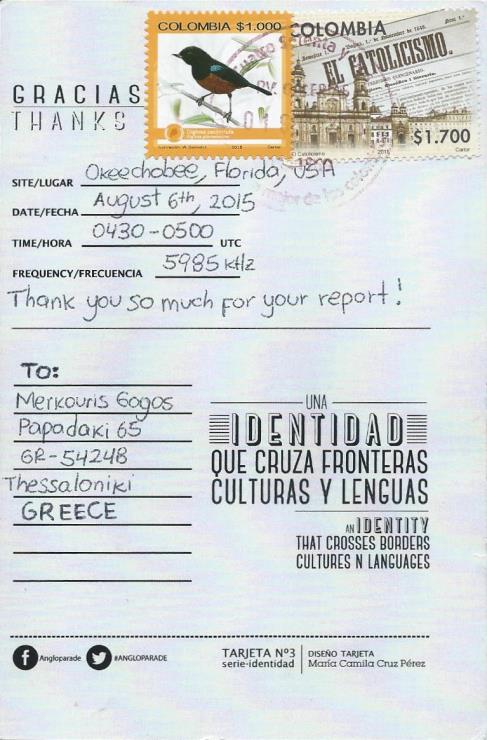 COLOMBIA $1.000
COLOMBIA
Nº 1.º
EL CATOLICISMO.
$1.700
El Catolicismo
2015
Cartor
2015
Cartor
GRACIAS
THANKS
SITE/LUGAR Okeechobee, Florida, USA
DATE/FECHA August 6th, 2015
TIME/HORA 0430-0500 UTC
FREQUENCY/FRECUENCIA 5985 kHz
Thank you so much for your report!
TO:
Merkouris Gogos
Papadaki 65
GR-54248
Thessaloniki
GREECE
UNA
IDENTIDAD
QUE CRUZA FRONTERAS
CULTURAS Y LENGUAS
AN IDENTITY
THAT CROSSES BORDERS
CULTURES N LANGUAGES
Angloparade #ANGLOPARADE
TARJETA Nº3
serie-identidad
DISEÑO TARJETA
María Camila Cruz Pérez